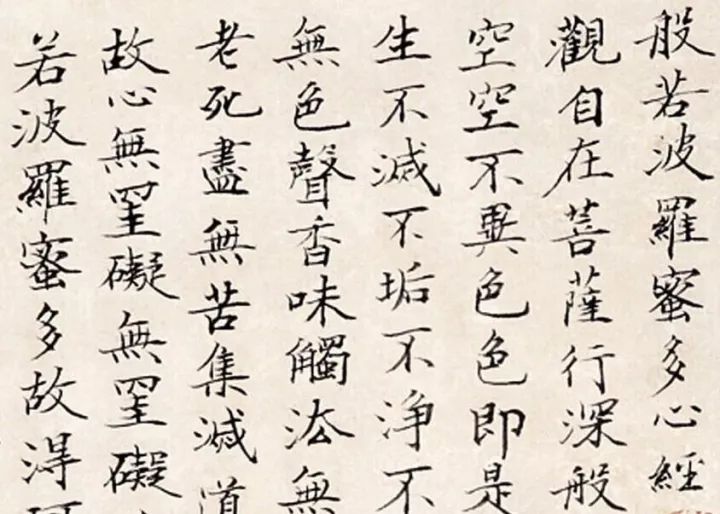 般若波羅蜜多心經
觀自在菩薩行深般
空空不異色色即是
生不滅不垢不淨不
無色聲香味觸法無
老死盡無苦集滅道
故心無罣礙無罣礙
若波羅蜜多故得